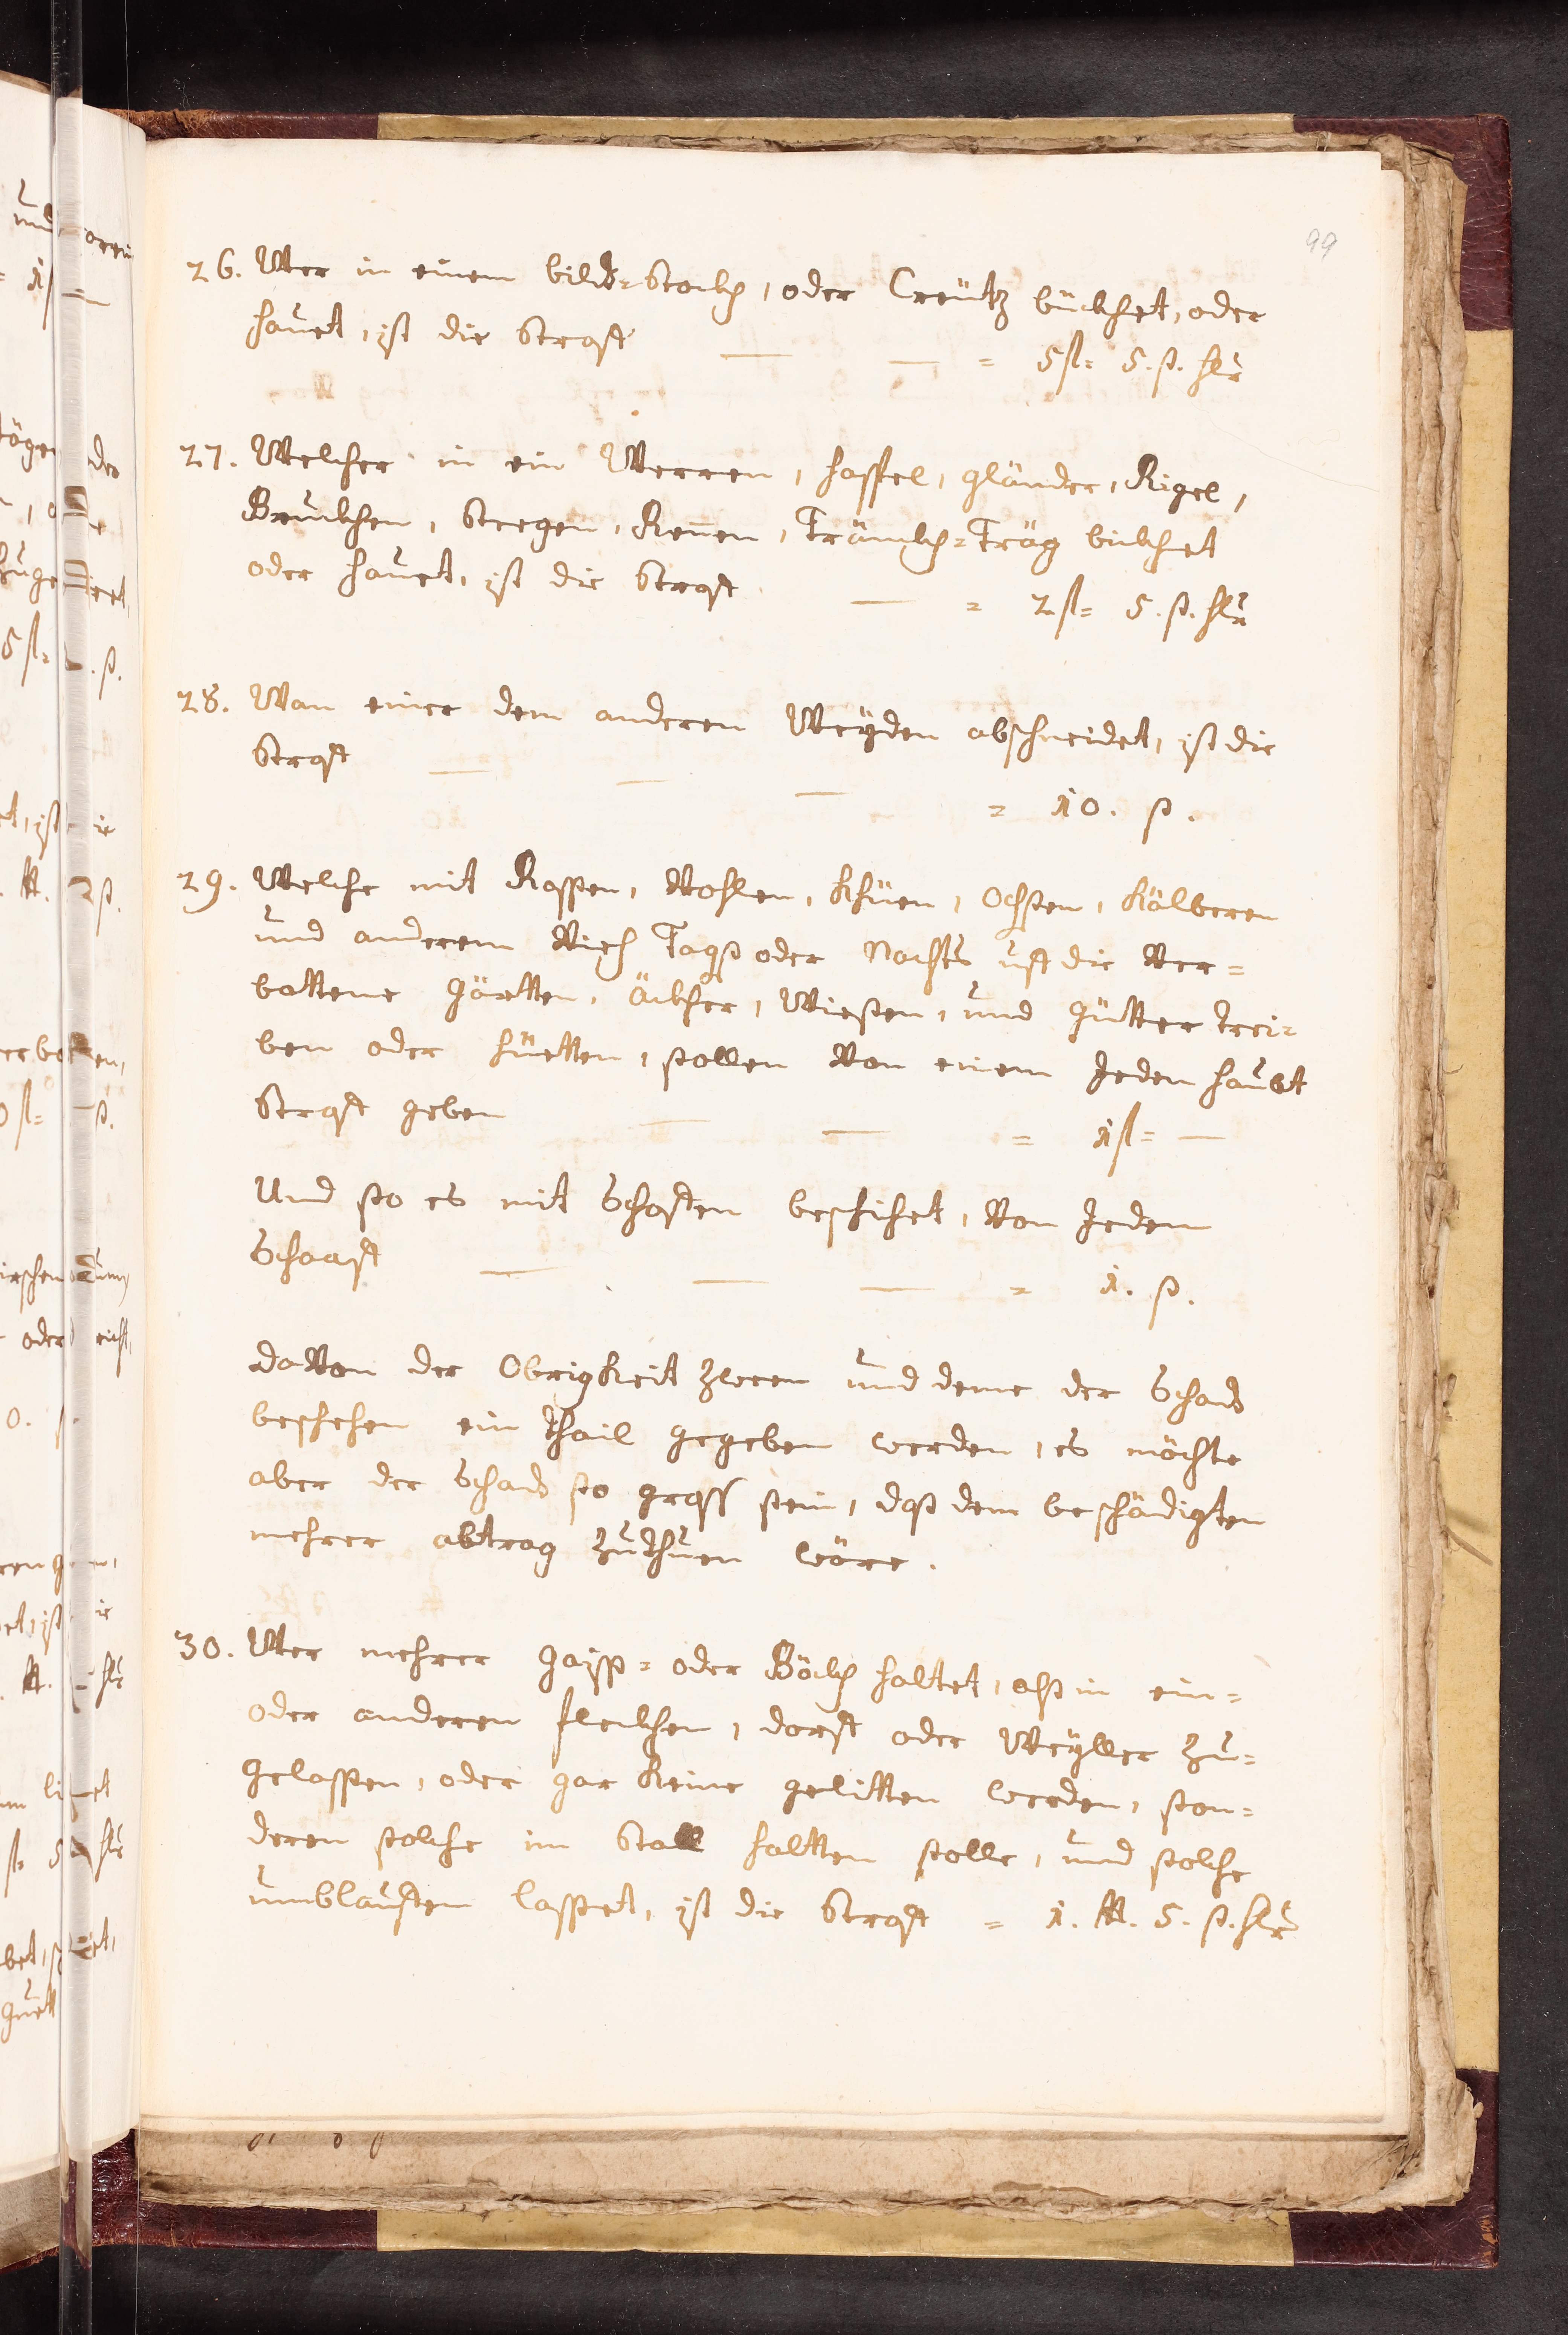 99
26. Wer in einem bild=Stockh, oder Creütz bückhet, oder
hauet, ist die Straff — — = 5 fl= 5. ß. hlr
27. Welcher in ein Werren, haffel, gländer, Rigel,
Bruckhen, Steegen, Rennen, Tränckh=Träg bickhet
oder hauet, ist die Straff — = 2 fl= 5. ß. hlr
28. Wan einer dem anderen Weyden abschneidet, ist die
Straff — — — = 10. ß.
29. Welche mit Rossen, Vohlen, Khüen, Ochsen, Kälberen
und anderem Viech Tags oder Nachts uff die Ver=
bottene gärtten, Äckher, Wiesen, und gütter trei=
ben oder hüetten, sollen Von einem Jeden haubt
Straff geben — — = 1 fl= —
Und so es mit Schaffen beschihet, Von Jedem
Schaaff — — — = 1. ß.
daVon der Obrigkeit zween und deme der Schad
beschehen ein thail gegeben werden, es möchte
aber der Schad so gross sein, dass dem beschädigten
mehrer abtrag zuthuen wäre.
30. Wer mehrer gaiss= oder Böckh haltet, alss in ein=
oder anderen fleckhen, dorff oder Weyller zu=
gelassen, oder gar keine gelitten werden, son=
deren solche im Stall haltten solle, und solche
umblauffen lasset, ist die Straff = 1. ℔. 5. ß. hlr